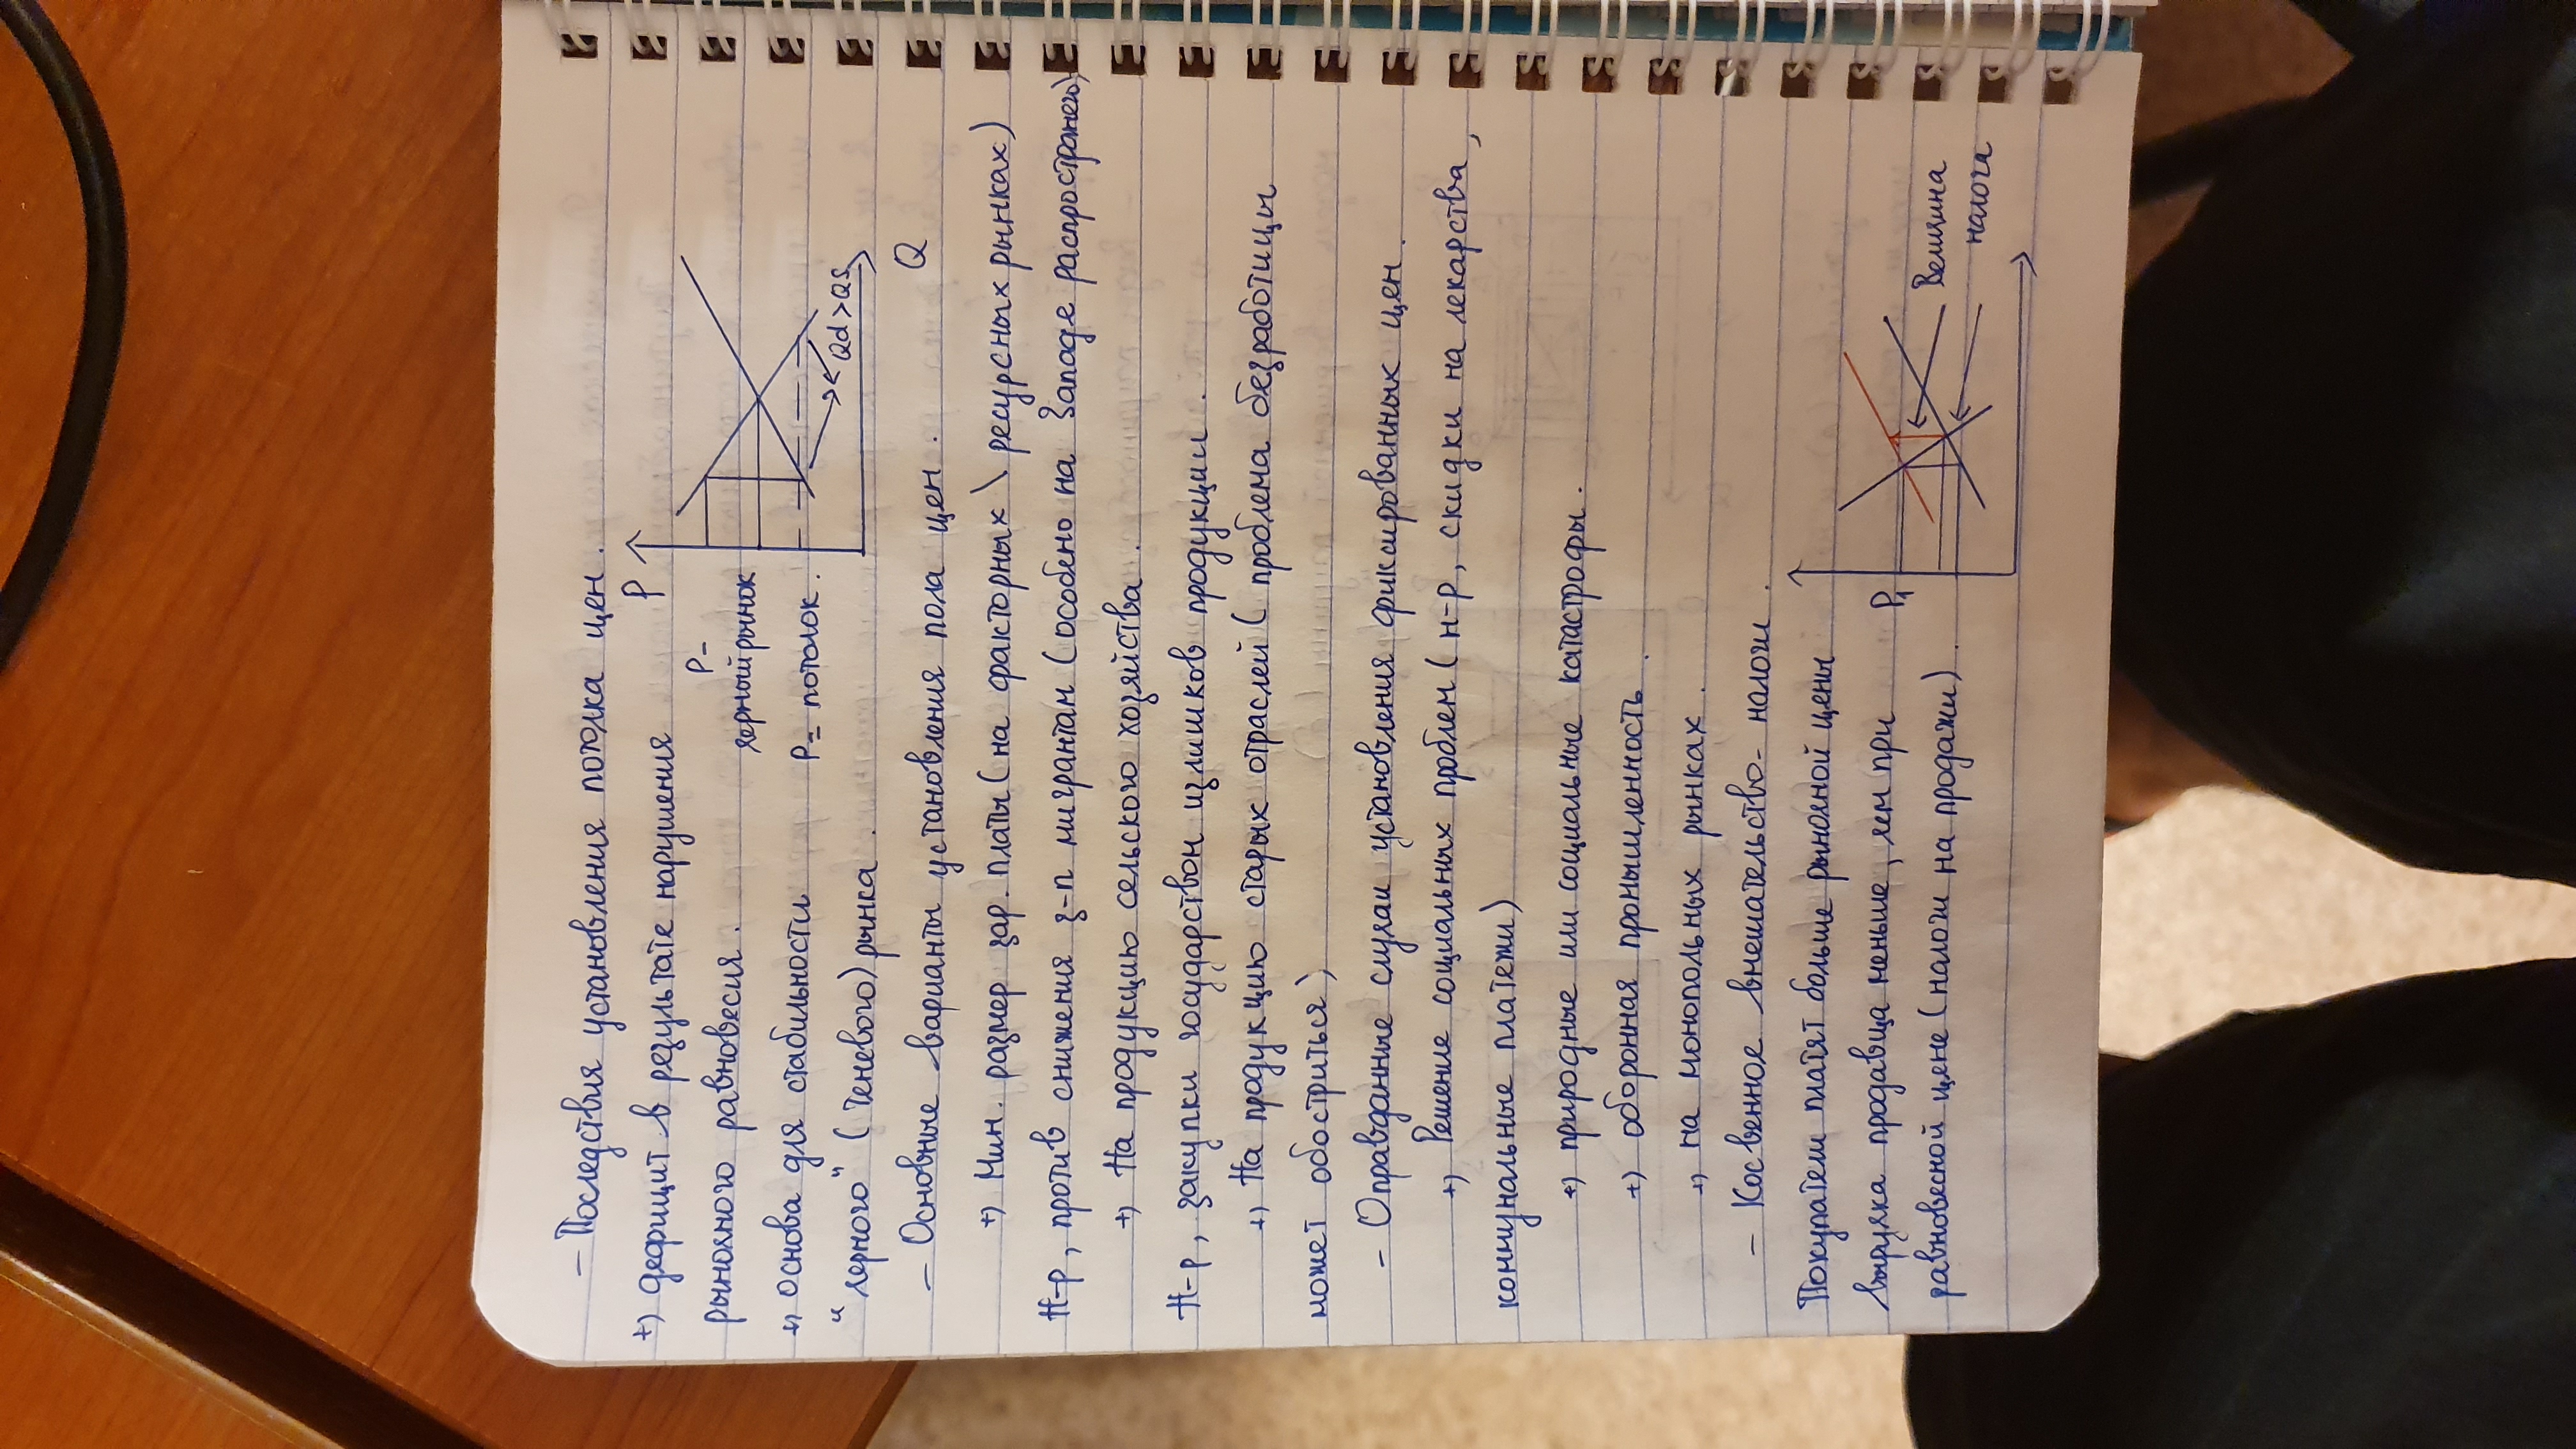 – Последствия установления потолка цен.
+) дефицит в результате нарушения
рыночного равновесия.
+) основа для стабильности
"черного" (теневого) рынка.
P
P–
черный рынок
P= потолок.
Qd>QS
Q
– Основные варианты установления пола цен.
+) Мин. размер зар. платы (на факторных \ ресурсных рынках)
Н-р, против снижения з-п мигрантам (особено на Западе распространего)
+) На продукцию сельского хозяйства.
Н-р, закупки государством излишков продукции.
+) На продукцию старых отраслей ( проблема безработицы
может обостриться)
– Оправданные случаи установления фиксированных цен.
+) Решение социальных проблем ( н-р, скидки на лекарства,
коммунальные платежи)
+) природные или социальные катастрофы.
+) оборонная промышленность.
+) на монопольных рынках.
– Косвенное вмешательство– налоги.
Покупатели платят больше рыночной цены
выручка продавца меньше, чем при
равновесной цене (налоги на продажи).
P1
Величина
налога